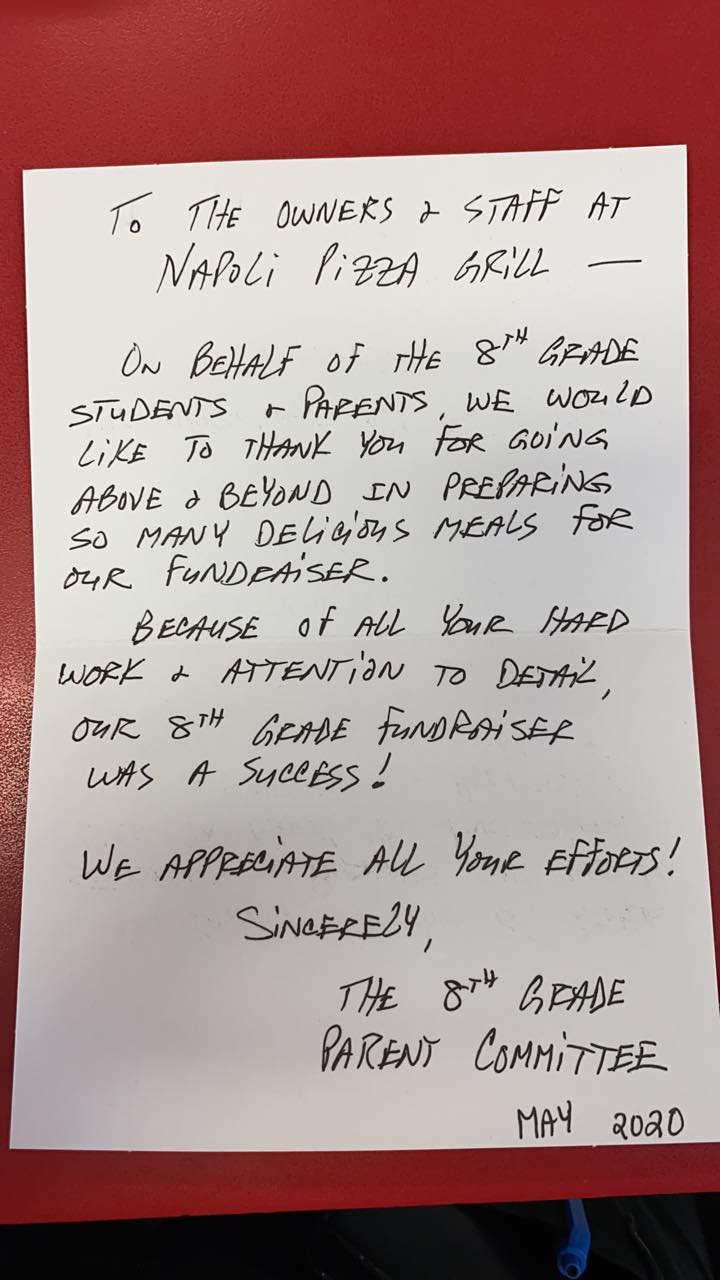 TO THE OWNERS & STAFF AT
NAPOLI PIZZA GRILL —
ON BEHALF OF THE 8TH GRADE
STUDENTS & PARENTS, WE WOULD
LIKE TO THANK YOU FOR GOING
ABOVE & BEYOND IN PREPARING
SO MANY DELICIOUS MEALS FOR
OUR FUNDRAISER.
BECAUSE OF ALL YOUR HARD
WORK & ATTENTION TO DETAIL,
OUR 8TH GRADE FUNDRAISER
WAS A SUCCESS!
WE APPRECIATE ALL YOUR EFFORTS!
SINCERELY,
THE 8TH GRADE
PARENT COMMITTEE
MAY 2020